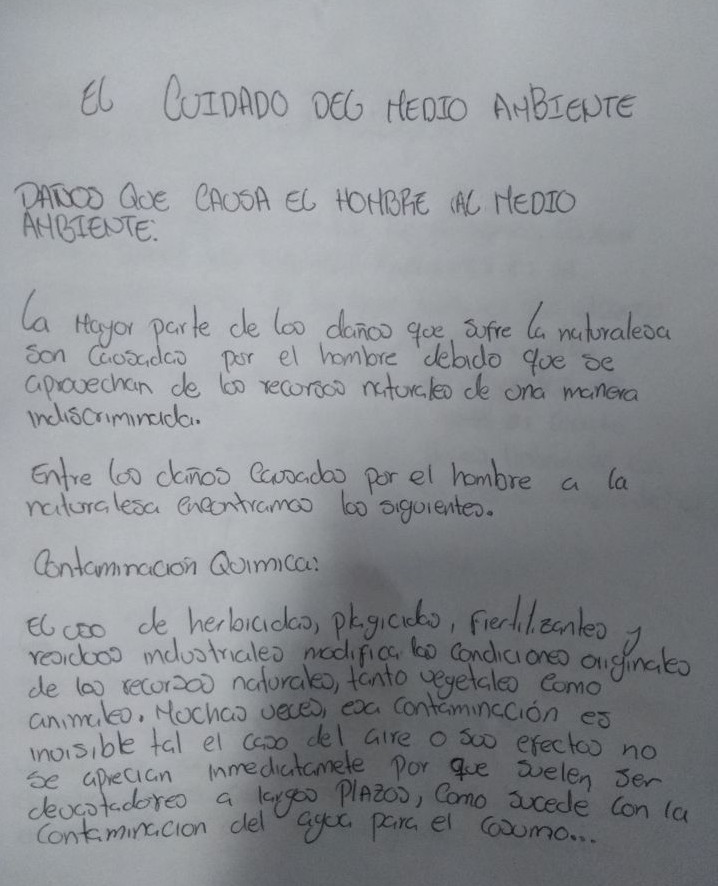 EL CUIDADO DEL MEDIO AMBIENTE
DAÑOS QUE CAUSA EL HOMBRE AL MEDIO
AMBIENTE:
La Mayor parte de los daños que sufre la naturalesa
son Causadas por el hombre debido que se
aprovechan de los recursos naturales de una manera
indiscriminada.
Entre los daños Causados por el hombre a la
naturalesa encontramos los siguientes.
Contaminación Quimica:
EL uso de herbicidas, plagicidas, Fierdilizantes y
residuos industriales modifica las condiciones originales
de los recursos naturales, tanto vegetales como
animales. Muchas veces, esa contaminación es
invisible tal el caso del aire o sus efectos no
se aprecian inmediatamete por que suelen ser
devastadores a largos PlAZOS, Como sucede con la
contaminacion del agua para el cosumo...